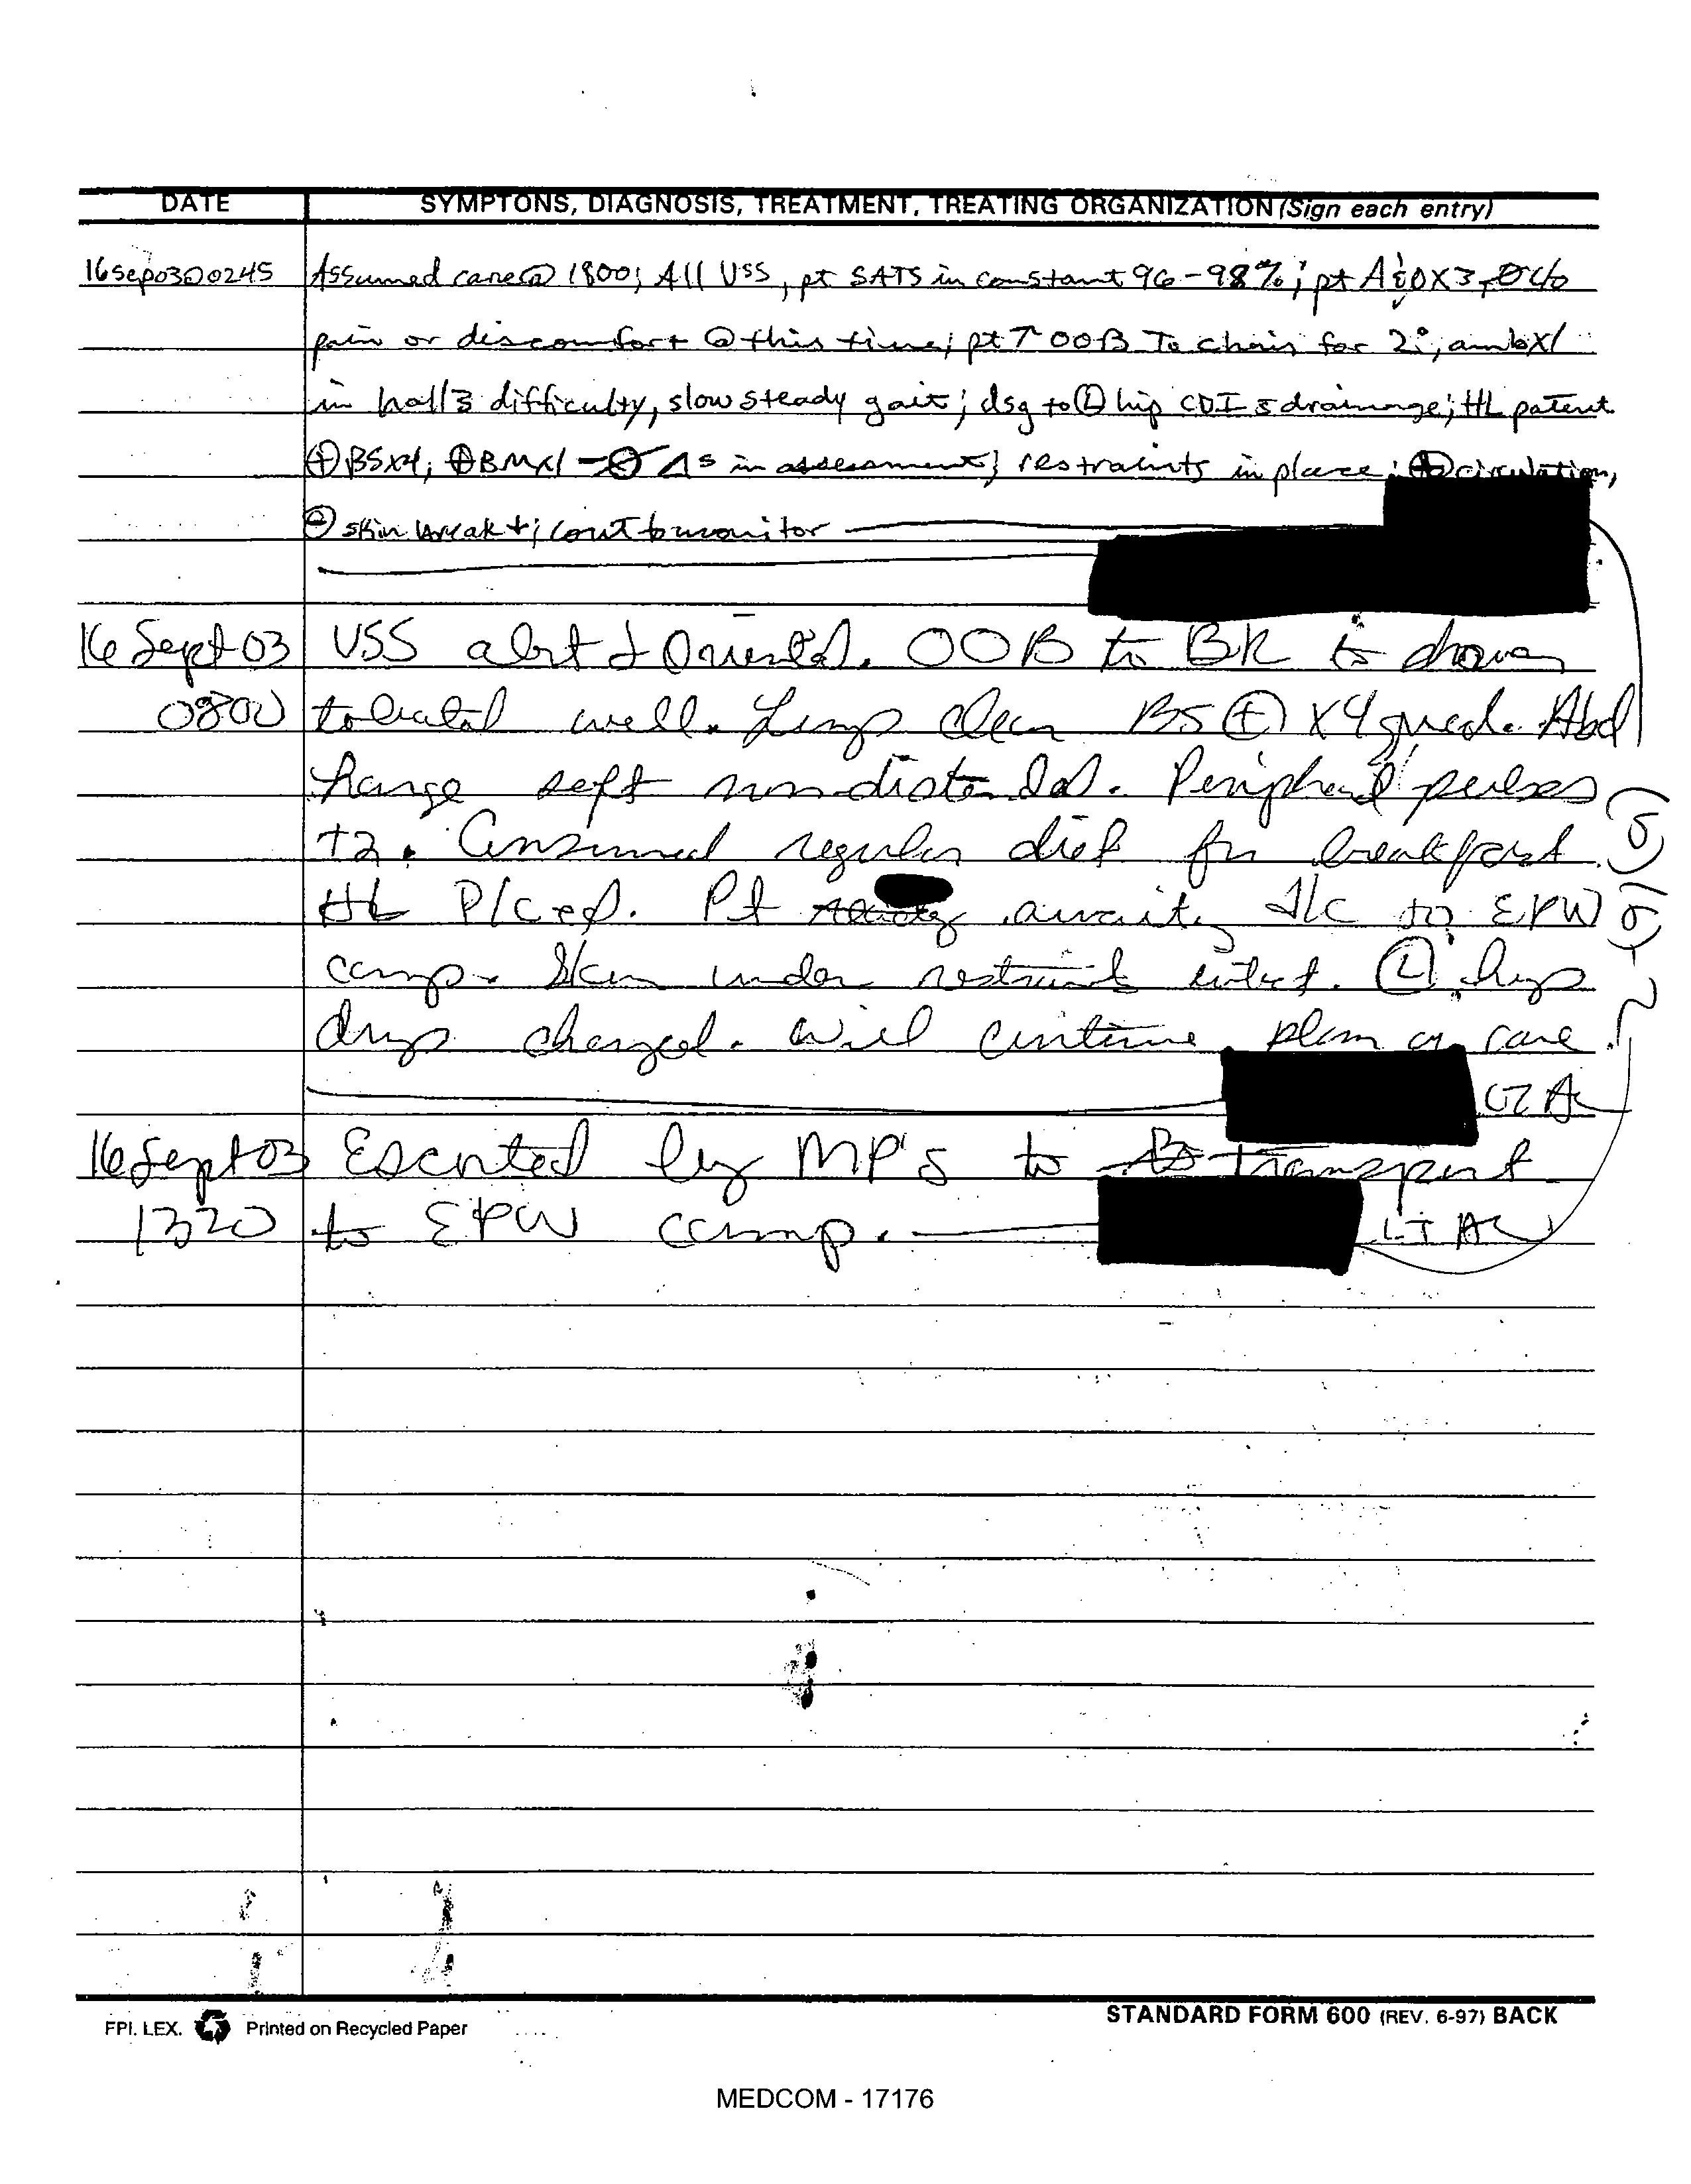 DATE SYMPTONS, DIAGNOSIS, TREATMENT, TREATING ORGANIZATION (Sign each entry)
16Sep03@0245 Assumed care@ 1800; All VSS, pt SATS in constant 96-98%; pt A&OX3, Ø c/o
pain or discomfort @ this time; pt ↑ OOB To chair for 2°, ambX1
in hall s̄ difficulty, slow steady gait; dsg to Ⓛ hip CDI s̄ drainage; HL patent
⊕ BSx4; ⊕BMx1 - Ø Δs in assessment; restraints in place; ⊕ circulation,
⊖ skin break↓; cont to monitor
16 Sept 03 VSS alert & Oriented. OOB to BR to
0800 tolerated well. Lungs clear BS ⊕ X4 quad. Abd
soft non-distended. Peripheral pulses
+2. Consumed regular diet for breakfast.
HL D/Ced. Pt awaiting d/c to EPW
camp. Skin under restraints intact. Ⓛ hip
changed. Will continue plan of care.
16 Sept 03 Escorted by MP's to transport
1320 to EPW camp. LT AN
(b)(6)-2
FPI. LEX. Printed on Recycled Paper
STANDARD FORM 600 (REV. 6-97) BACK
MEDCOM - 17176